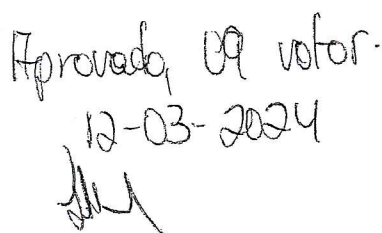 Aprovado, 09 votos.
12-03-2024